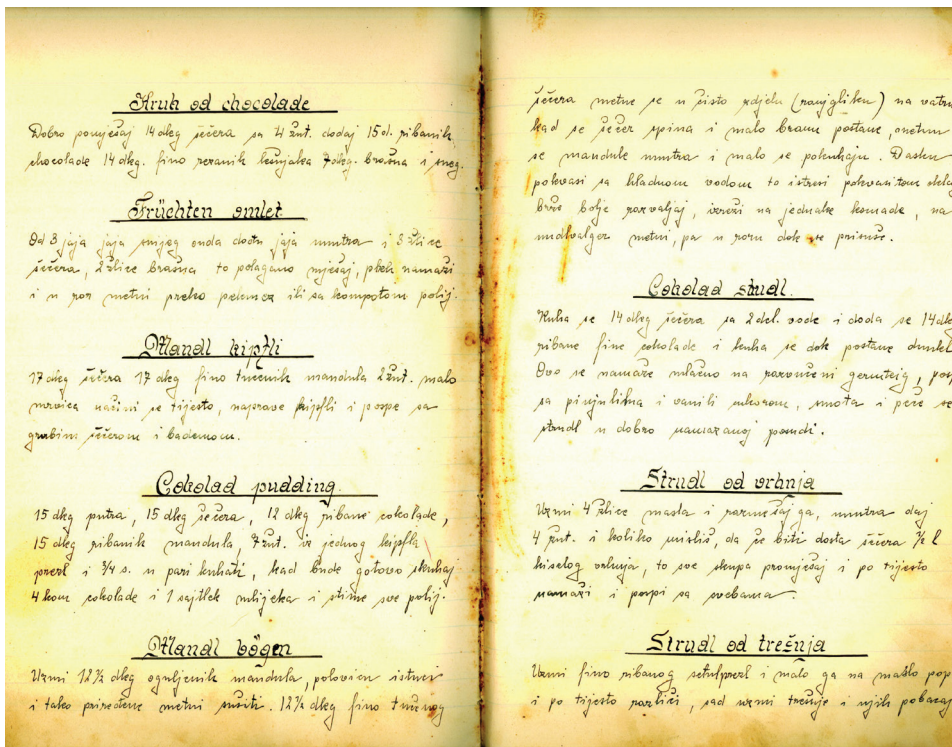 Kruh od chocolade
Dobro pomješaj 14 dkg šećera sa 4 žut. dodaj 15 d. ribanih
chocolade 14 dkg. fino rezanih lešnjaka 7 dkg. brašna i sneg.
Früchten omlet
Od 3 jaja jaja snijeg onda dođu jaja unutra i 3 žlice
šećera, 2 žlice brašna to polagano mješaj, pleh namaži
i u ror metni preko pekmez ili sa kompotom polij.
Mandl kipfli
17 dkg šećera 17 dkg fino tucenih mandula 2 žut. malo
mrvica načini se tijesto, naprave kipfli i pospe sa
grubim šećerom i bademom.
Cokolad pudding
15 dkg putra, 15 dkg šećera, 12 dkg ribane cokolade,
15 dkg ribanih mandula, 7 žut. iz jednog kipfla
prezl i 3/4 s. u pari kuhati, kad bude gotovo skuhaj
4 kom cokolade i 1 sajtlek mlijeka i stime sve polij.
Mandl bögen
Uzmi 12 1/2 dkg oguljenih mandula, polovicu istuci
i tako priređene metni sušiti. 12 1/2 dkg fino tucenog
šećera metne se u čisto zdjelu (ranjgliku) na vatru
kad se šećer spina i malo braun postane, onetnu
se mandule unutra i malo se pokuhaju. Dasku
pokvasi sa hladnom vodom to istresi pokvasitom
brže bolje razvaljaj, izreži na jednake komade, na
nudlvalger metni, pa u roru dok se prisuše.
Cokolad strudl.
Kuha se 14 dkg šećera sa 2 del. vode i doda se 14 dkg
ribane fine cokolade i kuha se dok postane dunkel
Ovo se namaže mlačno na razvučeni germteig, posp
sa pinjulima i vanili cukorom, smota i peče se
strudl u dobro namazanoj posudi.
Strudl od vrhnja
Uzmi 4 žlice masla i razmešaj ga, unutra daj
4 žut. i koliko misliš, da će biti dosta šećera 1/2 l
kiselog vrhnja, to sve skupa promješaj i po tijesto
namaži i pospi sa svebama.
Strudl od trešnja
Uzmi fino ribanog prezl i malo ga na maslo popr
i po tijesto različi, sad uzmi trešnje i njih pobacaj